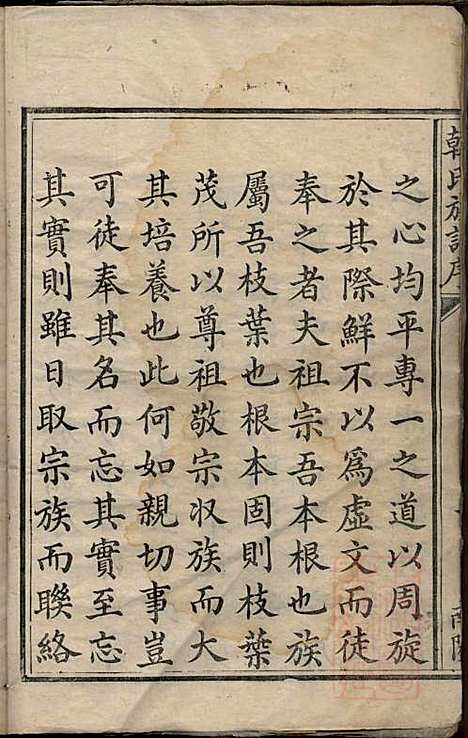 韓氏族譜序
之心均平專一之道以周旋
於其際鮮不以為虛文而徒
奉之者夫祖宗吾本根也族
屬吾枝葉也根本固則枝葉
茂所以尊祖敬宗収族而大
其培養也此何如親切事豈
可徒奉其名而忘其實至忘
其實則雖日取宗族而聯絡